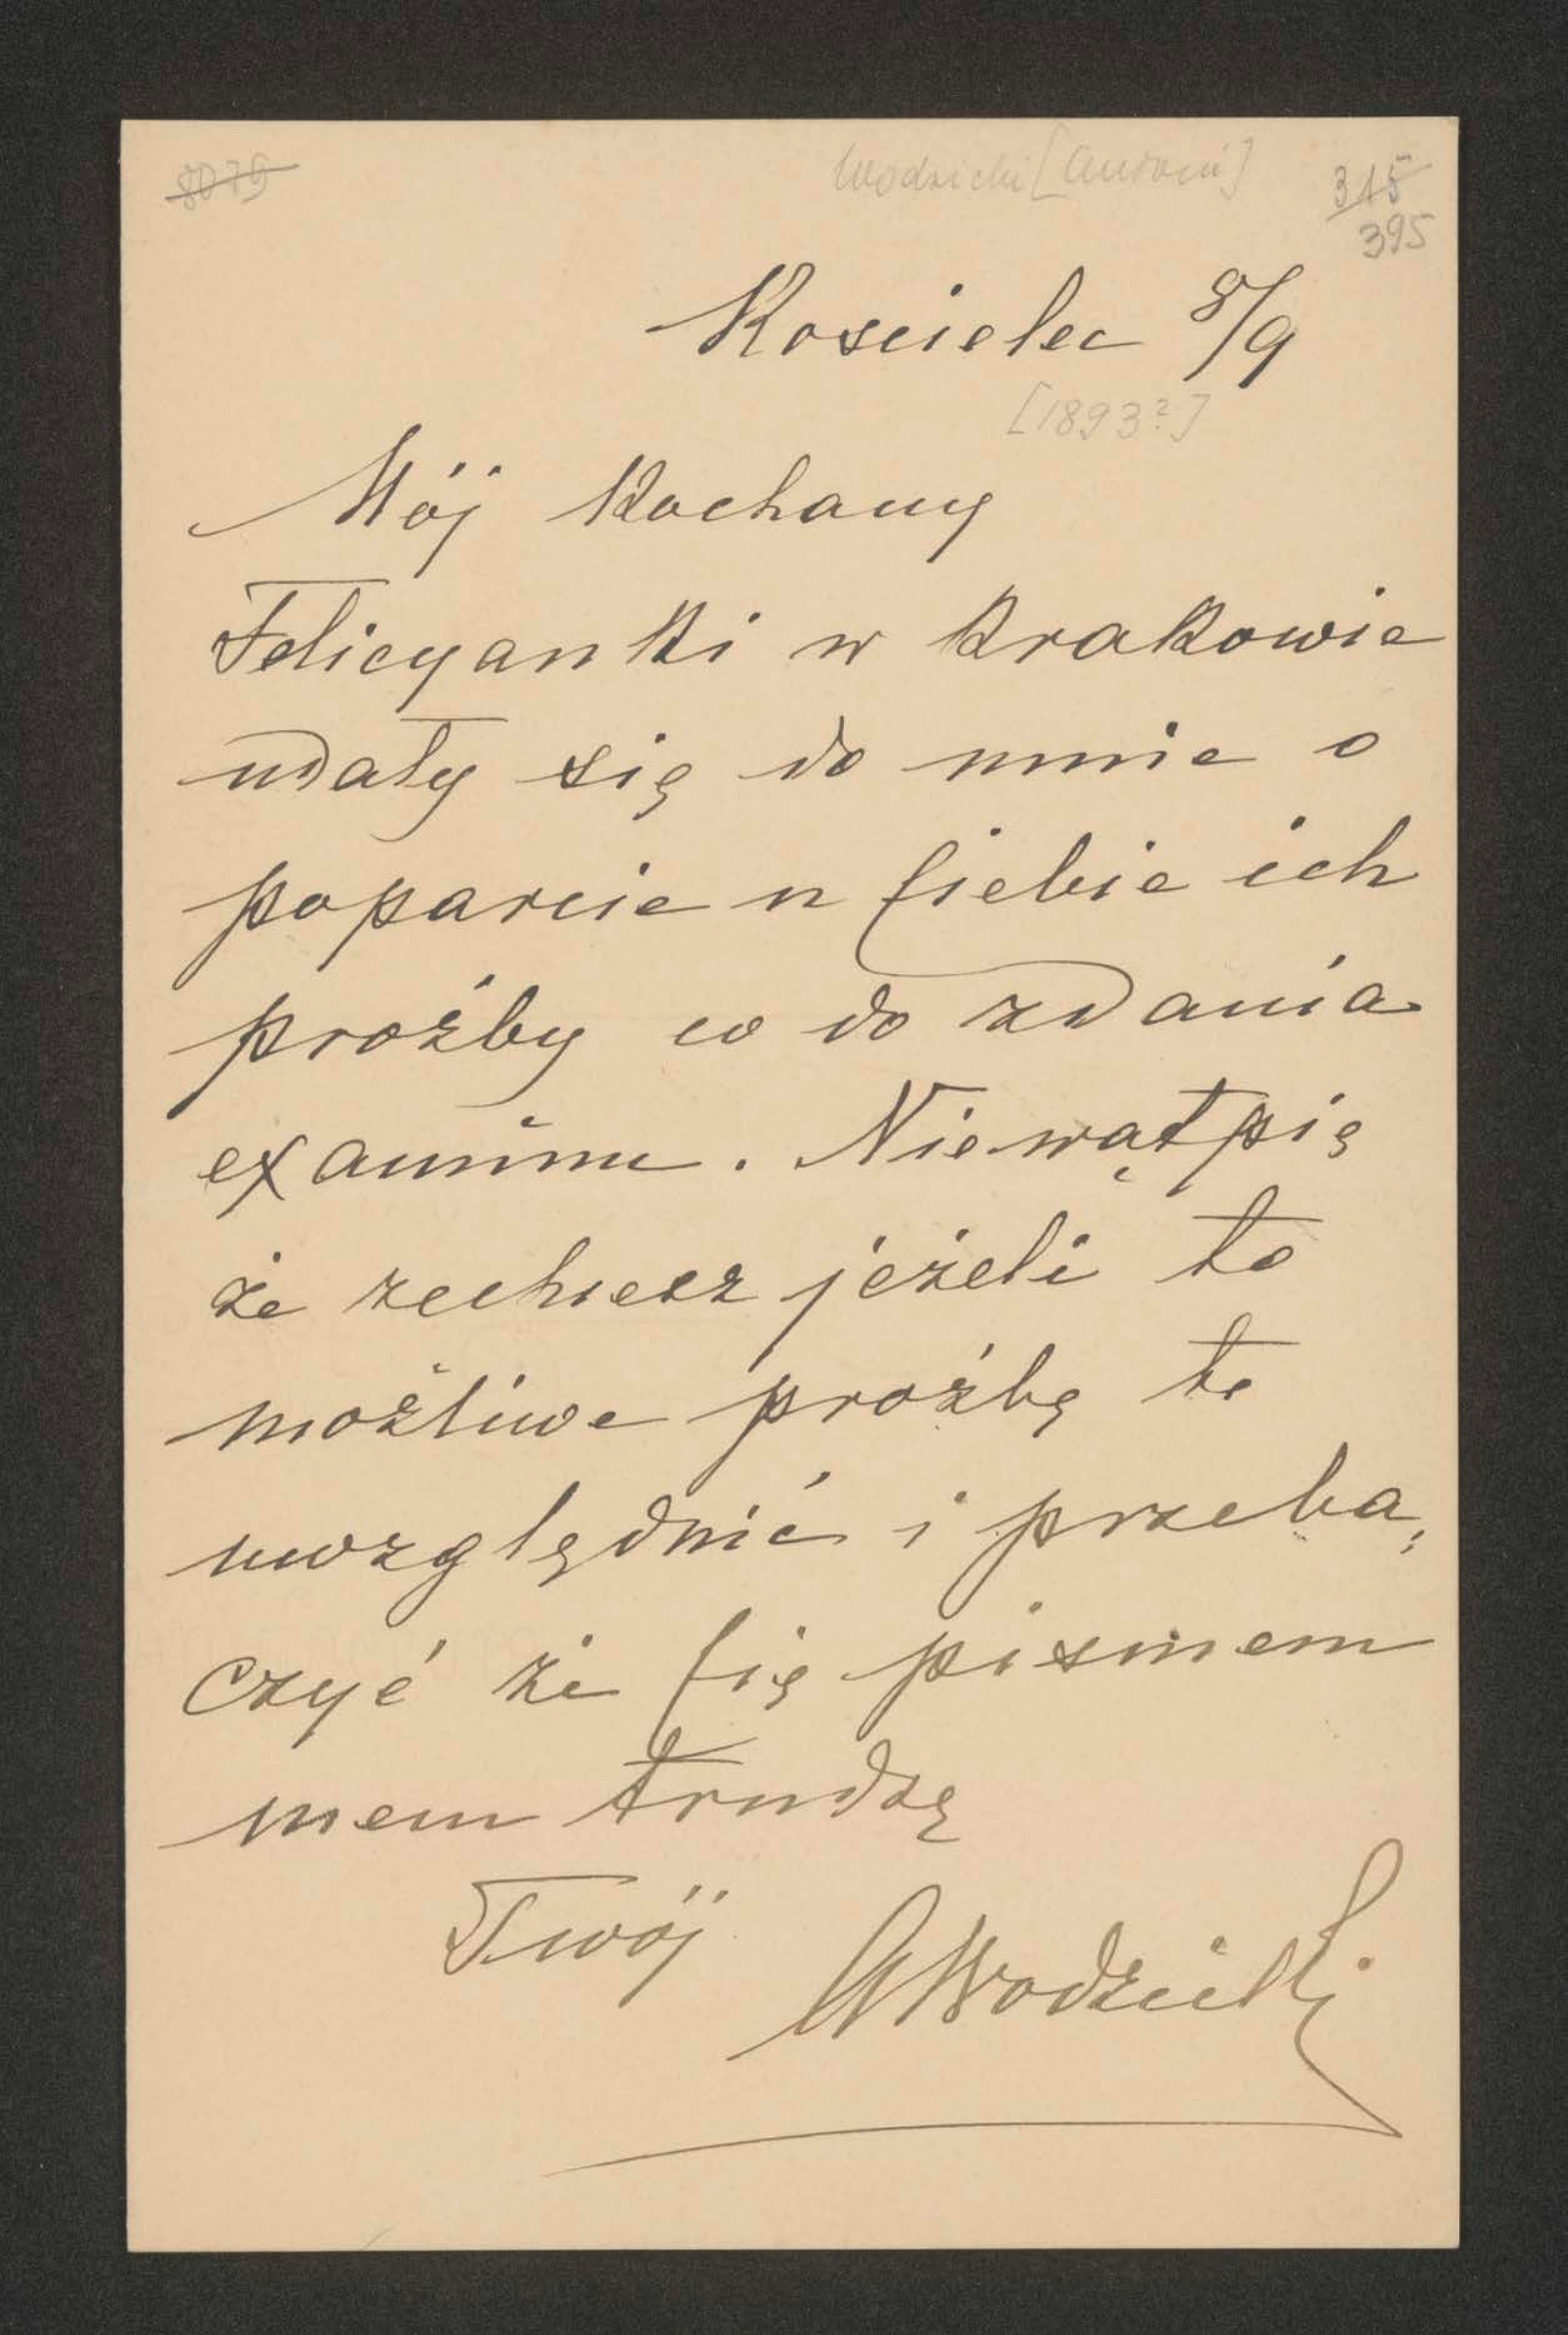 8079
Wodzicki [Antoni]
315
395
Koscielec 8/9
[1893?]
Mój Kochany
Felicyanki w Krakowie
udały się do mnie o
poparcie u Ciebie ich
prożby co do zdania
examinu. Niewątpię
że zechcesz jeżeli to
możliwe prożbę te
uwzględnić i przeba,
czyć że Cię pismem
mem trudzę
Twój
AWodzicki